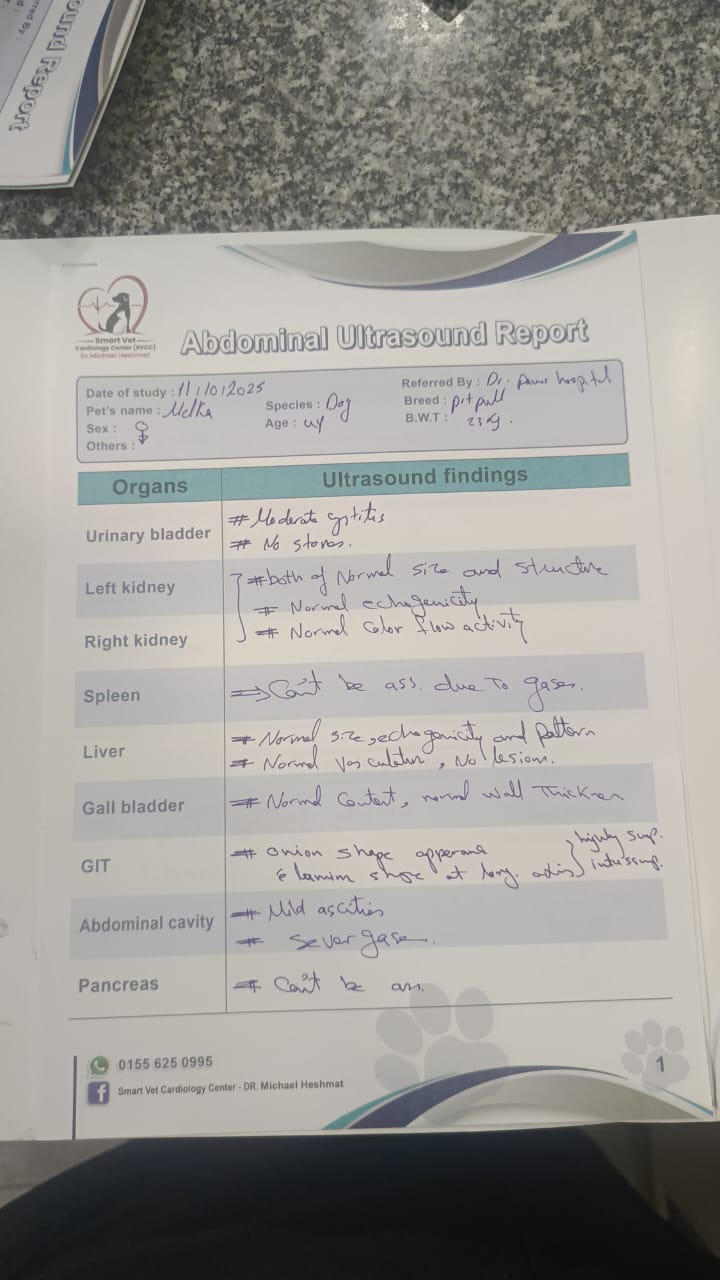 ound Report
rred By :
Smart Vet
Cardiology Center (SVCC)
Dr.Michael Heshmat
Abdominal Ultrasound Report
Date of study : 11/10/2025
Referred By : Dr. paws hospital
Pet's name : Melka
Species : Dog
Breed : pit pull
Sex : ♀
Age : 4y
B.W.T : 23 kg.
Others :
Organs
Ultrasound findings
Urinary bladder
# Moderate cystitis
# No stones.
Left kidney
# both of Normal size and structure
# Normal echogenicity
Right kidney
# Normal Color flow activity
Spleen
⇒ Can't be ass. due To gases.
Liver
# Normal size, echogenicity and pattern
# Normal Vasculature, No lesions.
Gall bladder
# Normal Content, normal wall Thickness
GIT
# onion shape
at long. axis
highly susp.
intussusp.
Abdominal cavity
# Mild ascities
# Sever gases.
Pancreas
# Can't be ass.
0155 625 0995
Smart Vet Cardiology Center - DR. Michael Heshmat
1